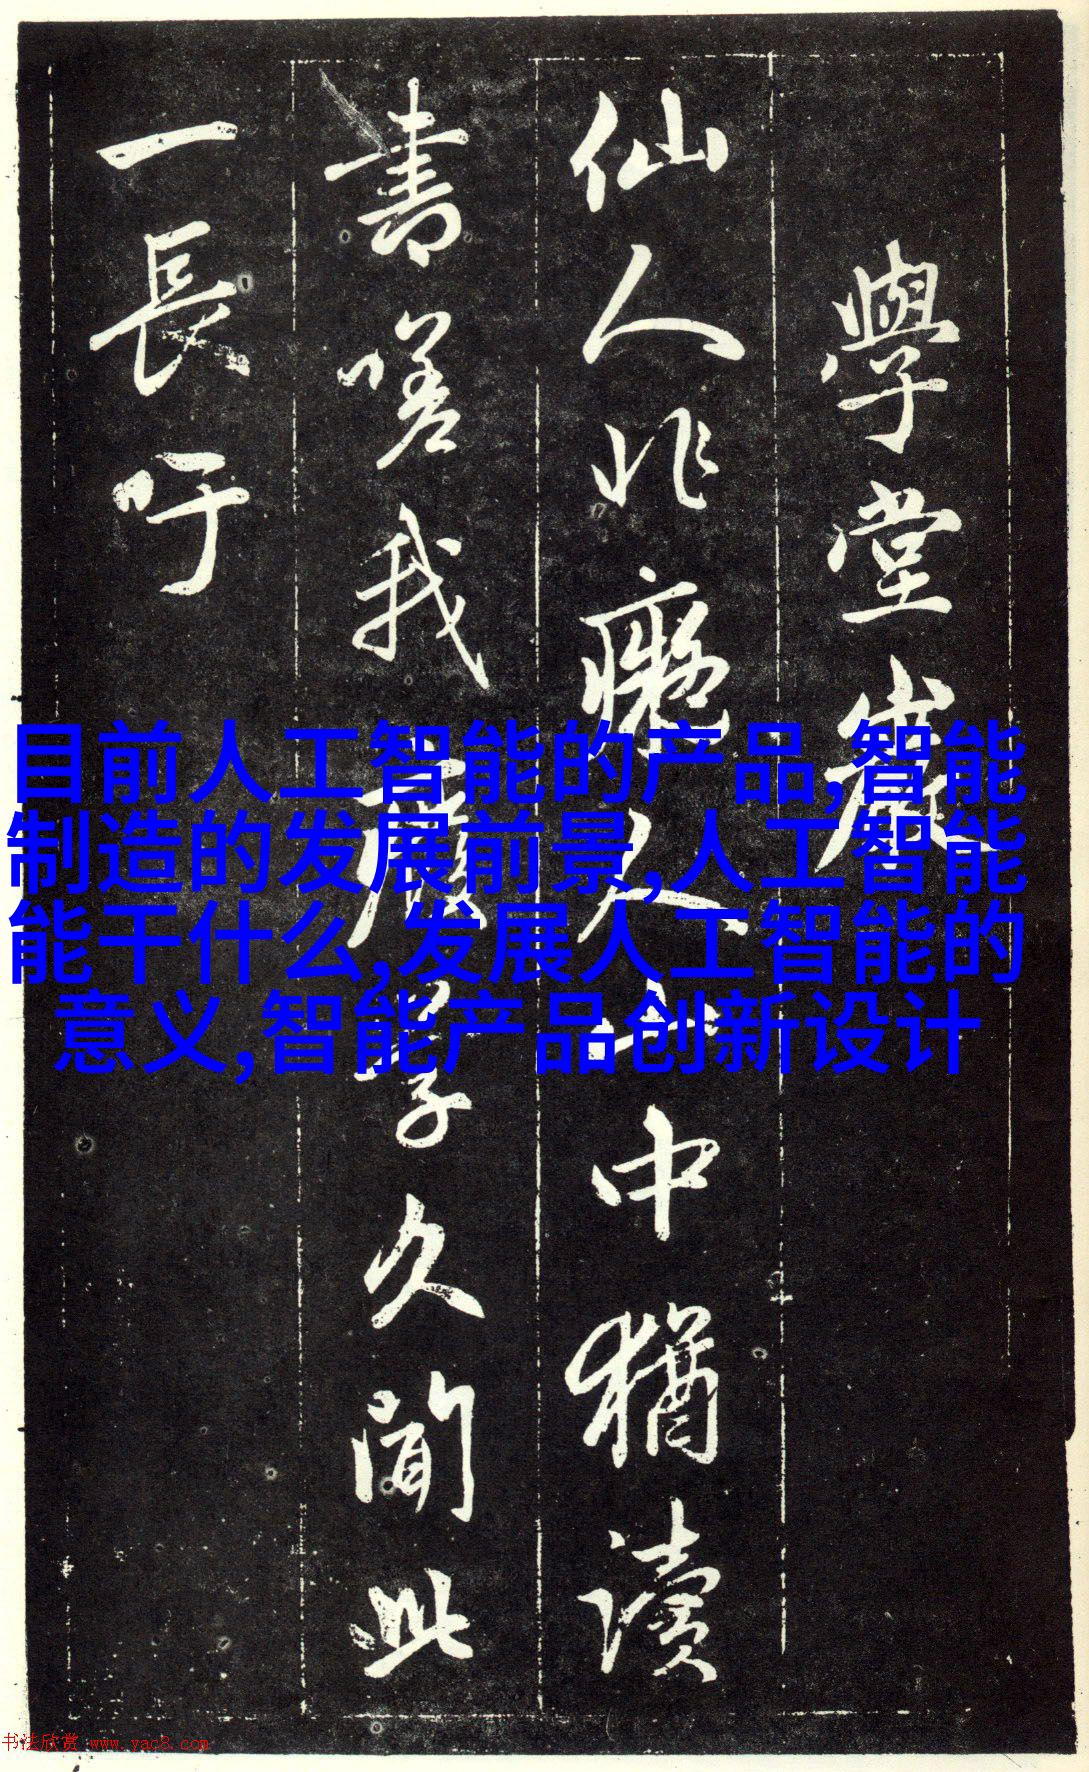 學堂巖
仙人非癡人山中猶讀
書嗟我廢學久聞此
一長吁
目前人工智能的产品,智能
制造的发展前景,人工智能
能干什么,发展人工智能的
意义,智能产品创新设计
书法欣赏 www.yac8.com